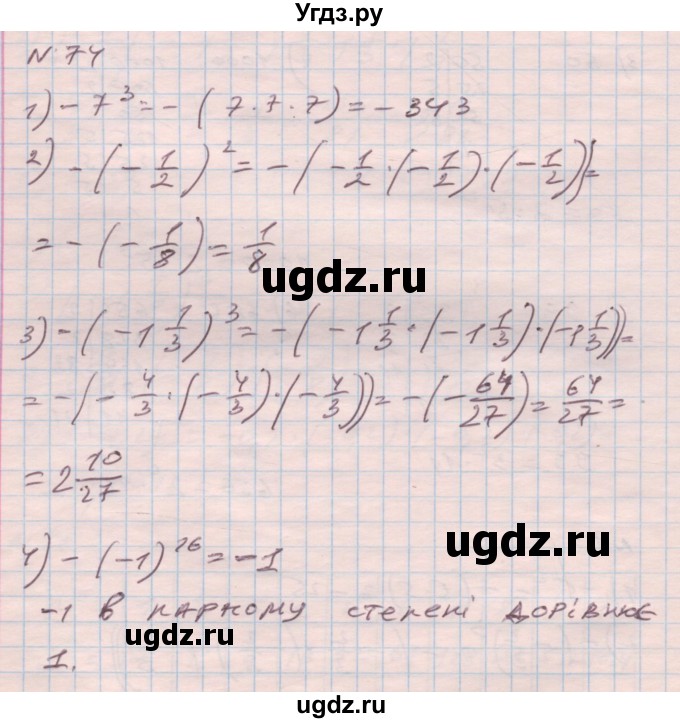 Угдз.ру
N 74
1) -7³ = -(7·7·7) = -343
2) -(-1/2)² = -(-1/2·(-1/2)·(-1/2)) =
= -(-1/8) = 1/8
ugdz.ru
3) -(-1 1/3)³ = -(-1 1/3·(-1 1/3)·(-1 1/3)) =
= -(-4/3·(-4/3)·(-4/3)) = -(-64/27) = 64/27 =
ugdz.ru
= 2 10/27
4) -(-1)²⁶ = -1
ugdz.ru
-1 в парному степені дорівнює
ugdz.ru
1.
ugdz.ru